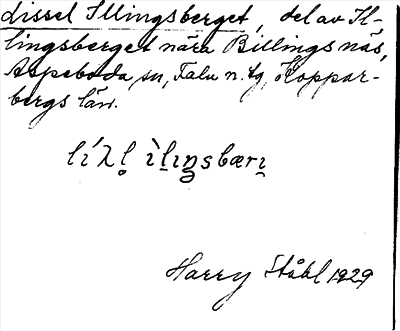 Lissel Illingsberget, del av Il-
lingsberget nära Billingsnäs,
Aspeboda sn, Falu n. tg, Koppar-
bergs län.
líλl̥ ìlıŋsbærı
Harry Ståhl 1929